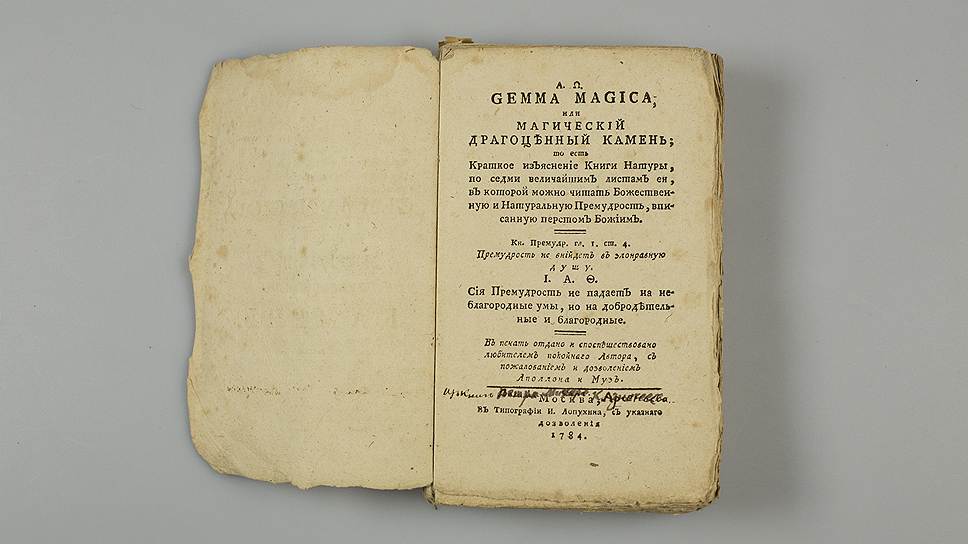 А. Ω.
GEMMA MAGICA,
или
МАГИЧЕСКІЙ
ДРАГОЦѢННЫЙ КАМЕНЬ;
то есть
Краткое изъясненіе Книги Натуры,
по седми величайшимъ листамъ ея,
въ которой можно читать Божествен-
ную и Натуральную Премудрость, впи-
санную перстомъ Божіимъ.
Кн. Премудр. гл. 1. ст. 4.
Премудрость не внійдетъ въ злонравную
душу.
I. А. Θ.
Сія Премудрость не падаетъ на не-
благородные умы, но на добродѣтель-
ные и благородные.
Въ печать отдано и споспѣшествовано
любителемъ покойнаго Автора, съ
пожалованіемъ и дозволеніемъ
Аполлона и Музъ.
Москва,
въ Типографіи И. Лопухина, съ указнаго
дозволенія
1784.